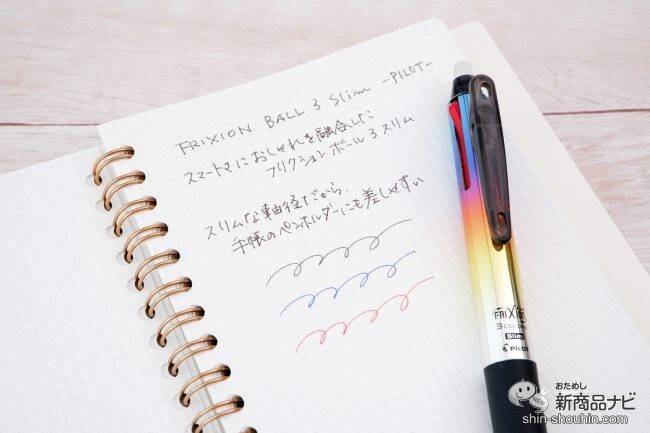 FRIXION BALL 3 Slim -PILOT-
スマートさにおしゃれを融合した
フリクションボール3スリム
スリムな軸径だから、
手帳のペンホルダーにも差しやすい
FRIXION
3 COLOR
Slim
PILOT
おためし
新商品ナビ
NEW
shin-shouhin.com